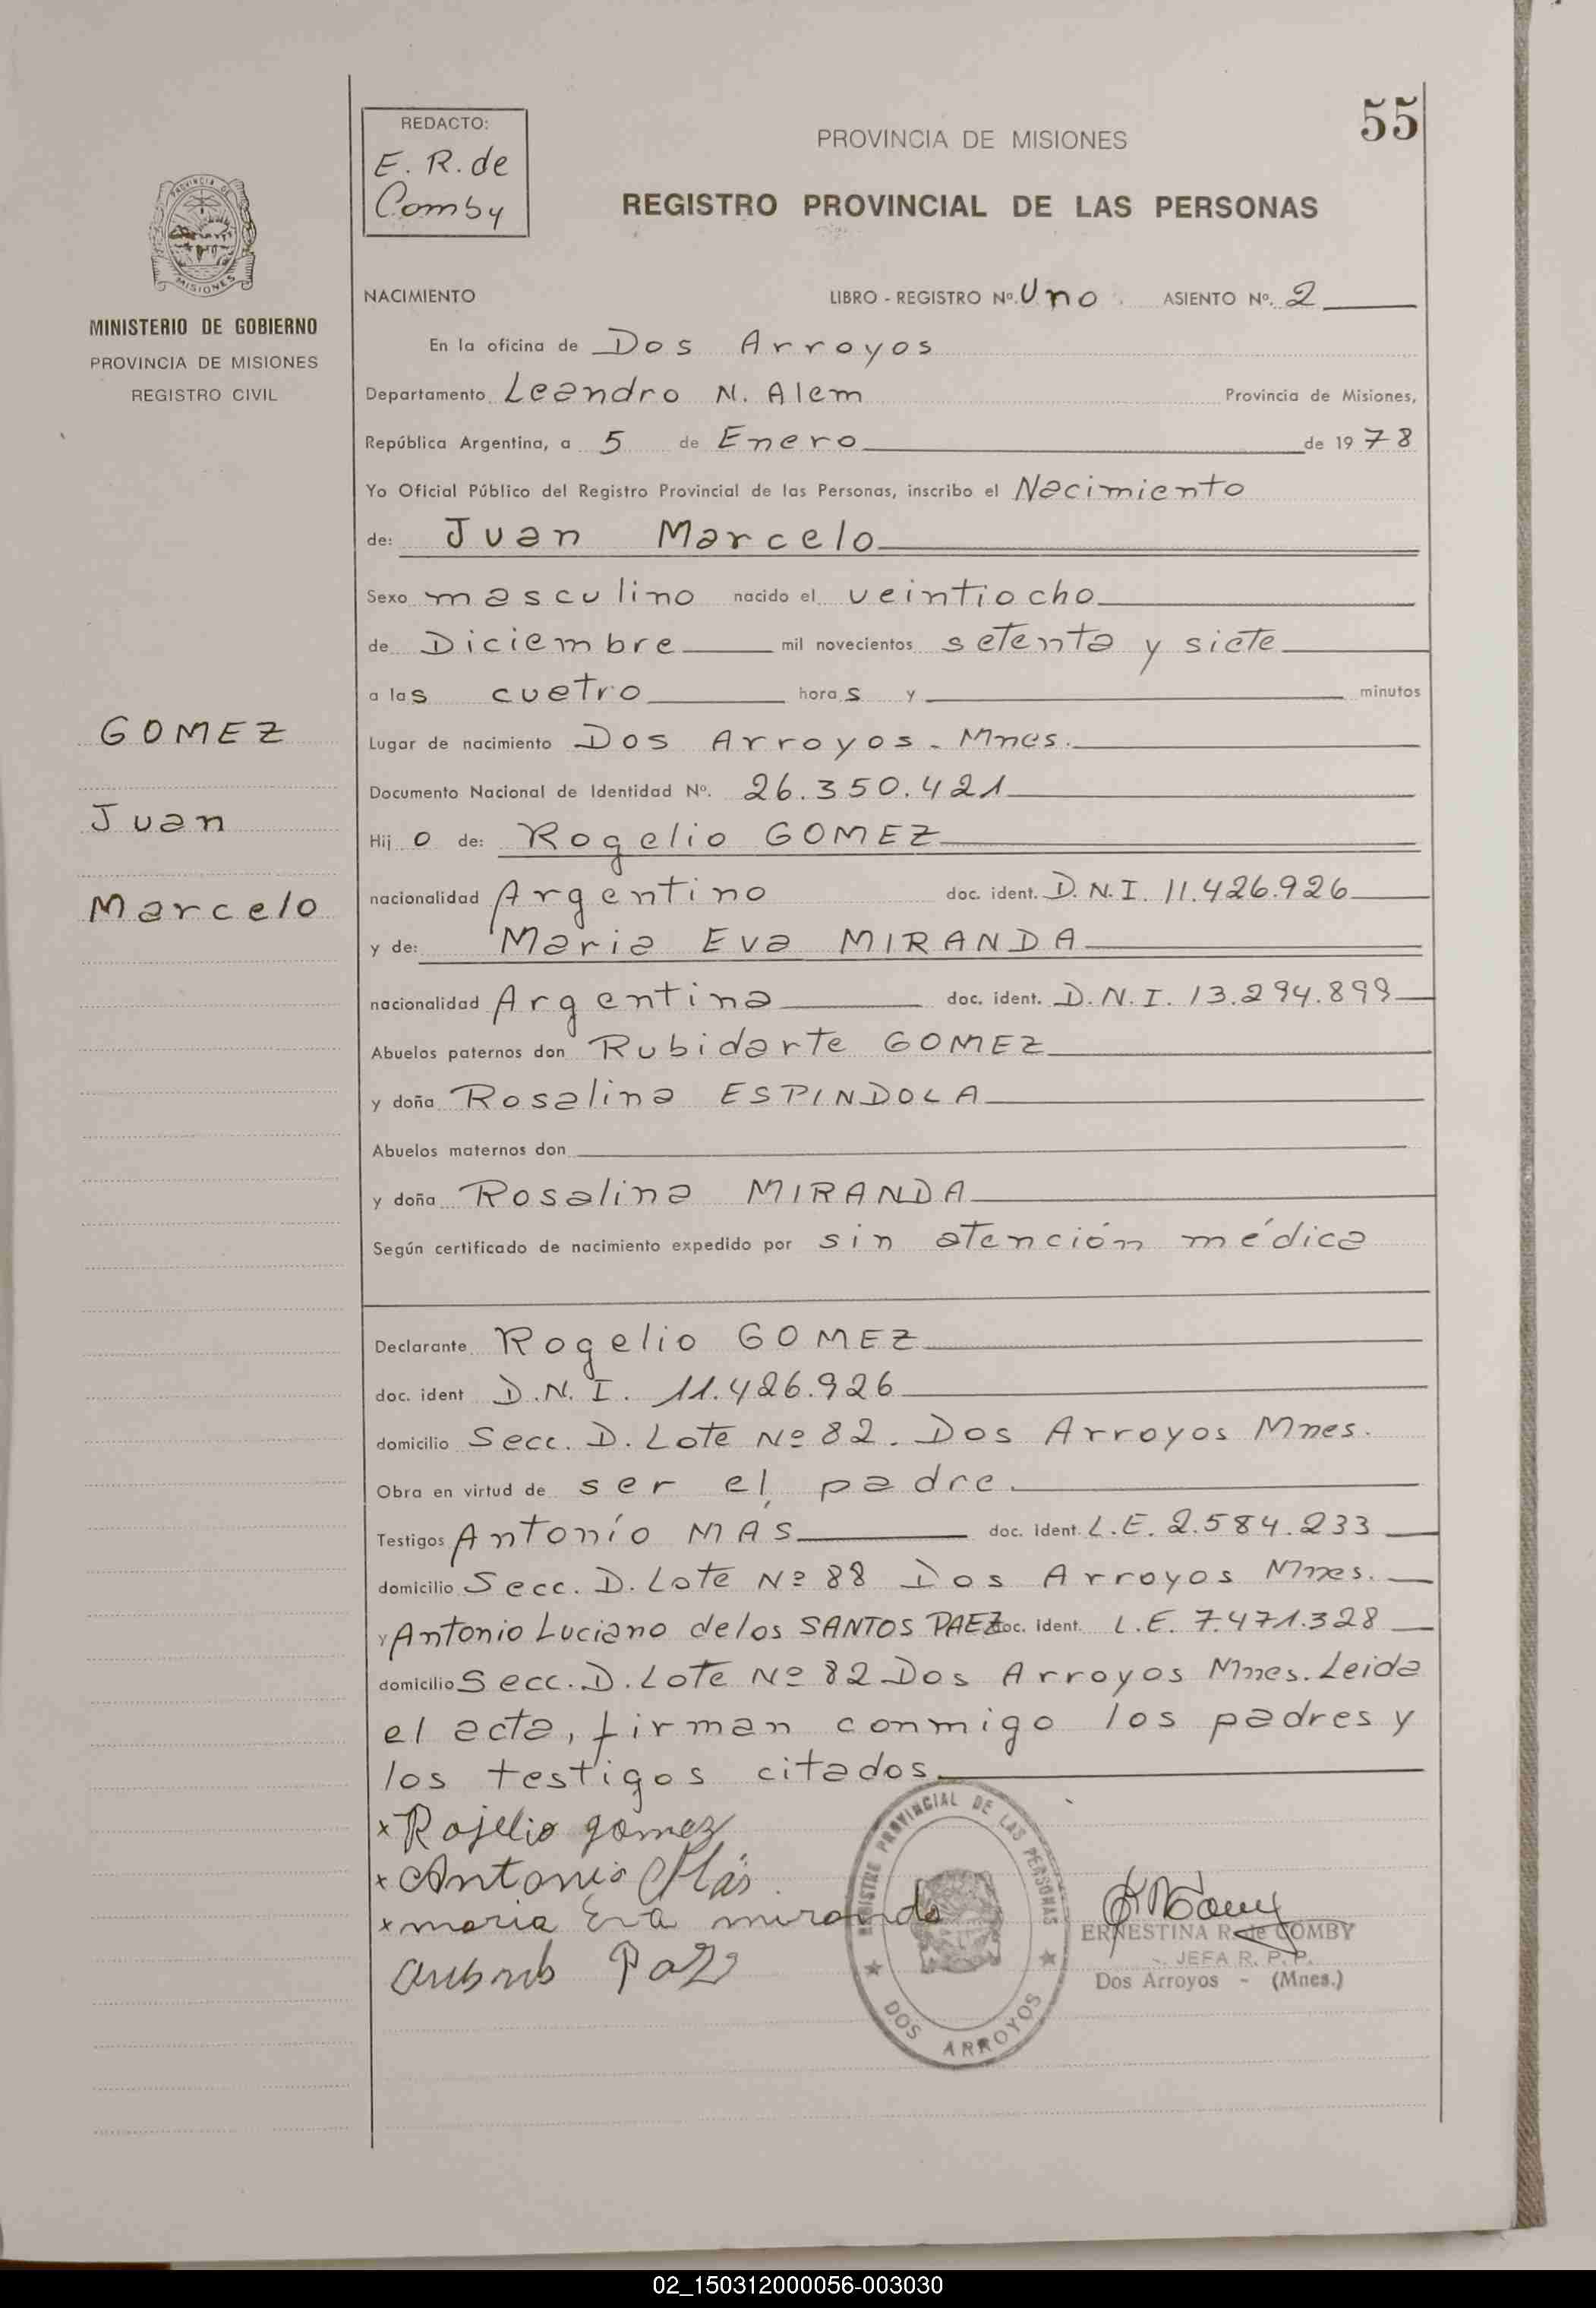 55
REDACTO:
E. R. de
Comby
PROVINCIA DE MISIONES
REGISTRO PROVINCIAL DE LAS PERSONAS
PROVINCIA DE
MISIONES
MINISTERIO DE GOBIERNO
PROVINCIA DE MISIONES
REGISTRO CIVIL
GOMEZ
Juan
Marcelo
NACIMIENTO LIBRO - REGISTRO Nº. Uno. ASIENTO Nº. 2
En la oficina de Dos Arroyos
Departamento Leandro N. Alem Provincia de Misiones,
República Argentina, a 5 de Enero de 1978
Yo Oficial Público del Registro Provincial de las Personas, inscribo el Nacimiento
de: Juan Marcelo
Sexo masculino nacido el veintiocho
de Diciembre mil novecientos setenta y siete
a las cuatro horas y minutos
Lugar de nacimiento Dos Arroyos - Mnes.
Documento Nacional de Identidad Nº. 26.350.421
Hijo de: Rogelio GOMEZ
nacionalidad Argentino doc. ident. D.N.I. 11.426.926
y de: Maria Eva MIRANDA
nacionalidad Argentina doc. ident. D.N.I. 13.294.899
Abuelos paternos don Rubidarte GOMEZ
y doña Rosalina ESPINDOLA
Abuelos maternos don
y doña Rosalina MIRANDA
Según certificado de nacimiento expedido por sin atención médica
Declarante Rogelio GOMEZ
doc. ident D.N.I. 11.426.926
domicilio Secc. D. Lote Nº 82. Dos Arroyos Mnes.
Obra en virtud de ser el padre
Testigos Antonio MÁS doc. ident. L.E. 2.584.233
domicilio Secc. D. Lote Nº 88 Dos Arroyos Mnes.
y Antonio Luciano delos SANTOS PAEZ doc. ident. L.E. 7.471.328
domicilio Secc. D. Lote Nº 82 Dos Arroyos Mnes. Leida
el acta, firman conmigo los padres y
los testigos citados
x Rojelio gomez
x Antonio Más
x maria Eva miranda
REGISTRE PROVINCIAL DE LAS PERSONAS
DOS ARROYOS
ERNESTINA R. de COMBY
JEFA R. P. P.
Dos Arroyos - (Mnes.)
02_150312000056-003030